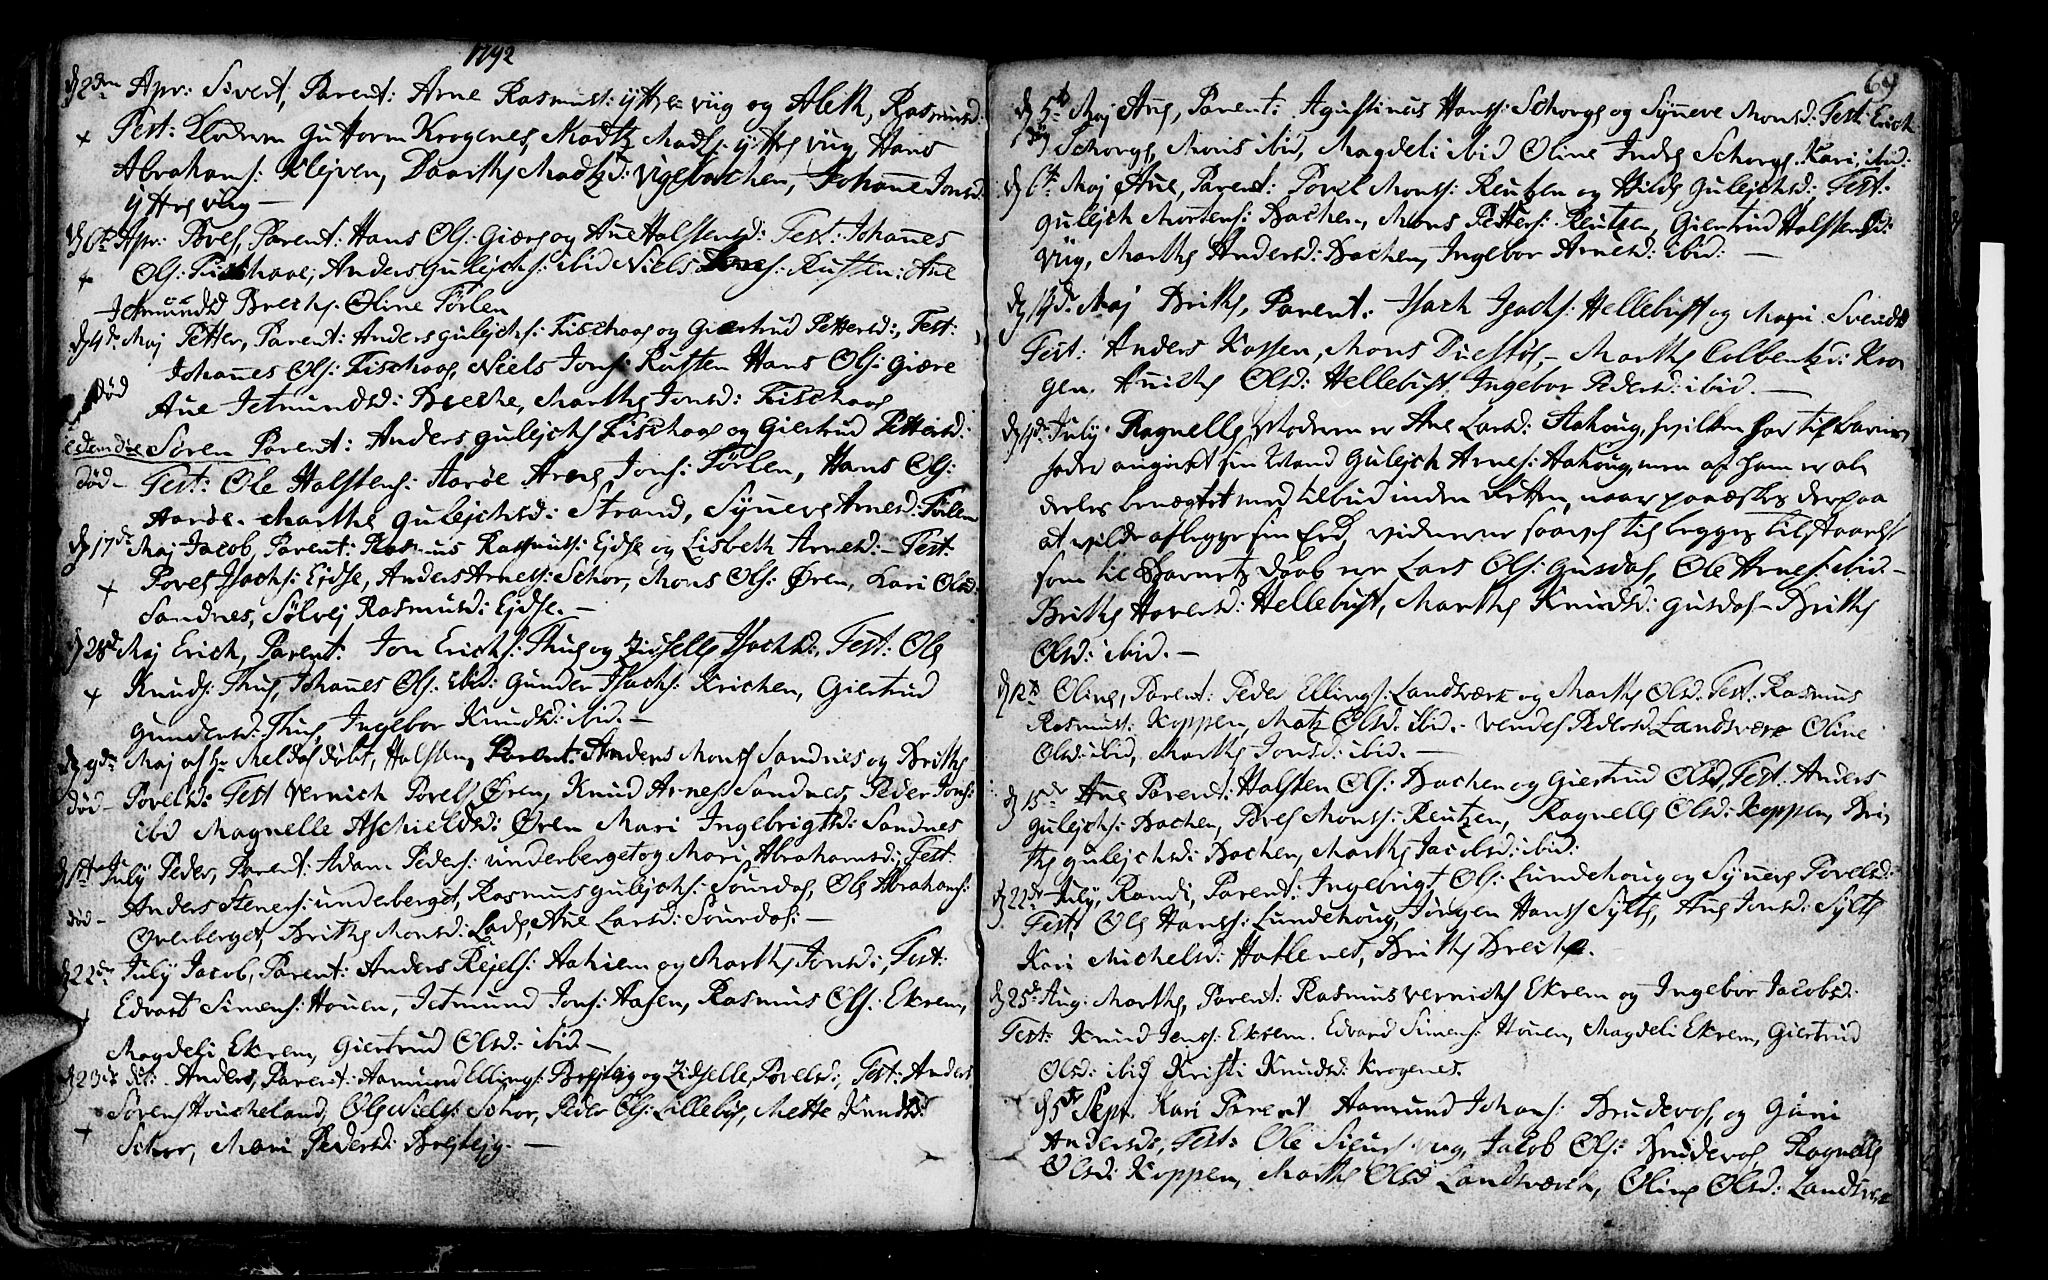 1792
d 2den Apr: Sivert, Parent: Arne Rasmus: yttre viig og Aleth, Rasmusd:
+ Test: Guttorm Krogenes, Madtz Mads: yttre viig Hans
Abrahams: Klejven, Daarthe Madtzd: Vigebachen, Johanne Jonsd:
yttre viig —
d 6te Apr: Povel, Parent: Hans Ols: Giære og Ane Halstensd: Test: Johanes
+ Ols: Fischaae, Anders Gulejchs: ibid Niels Jons: Rusten: Ane
Jetmundsd Breche. Oline Förlen
d 4de Maj Petter, Parent: Anders gulejchs: Fischaas og Giertrud Pettersd:, Test:
Johanes Ols: Fischaas, Niels Jons: Rusten Hans Ols: Giære
død Ane Jetmundsd: Breche, Marthe Jonsd: Fischaas
eodem die Sören Parent: Anders gulejchs Fischaas og Giertrud Pettersd:
død — Test: Ole Halstens: Aaröe Arne Jons: Förlen, Hans Ols:
Aaröe. Marthe gulejchsd: Strand, Synere Arnesd: Förlen
d 17de Maj Jacob, Parent: Rasmus Rasmus: Ejdse og Lisbeth Arnesd: — Test:
+ Povel Isachs: Ejdse, Anders Arness: Schor, Mons Ols: Øren, Kari Olsd:
Sandnes, Sölvej Rasmusd: Ejdse. —
d 28de Maj Erich, Parent: Jon Erichs: Thue og Zidselle Isachsd:, Test: Ole
+ Knuds: Thue, Johanes Ols: ibid: Gunder Isachs: Krichen, Giertrud
Gundersd: Thue, Ingebor Knudsd: ibid. —
d 9de Maj af Hr Meldal döbt, Halsten, Parent: Anders Mons Sandnes og Brithe
død — Povelsd: Test Vernich Povels Øren, Knud Arnes Sandnes, Peder Jons:
ibid Magnelle Aschieldsd: Øren Mari Ingebrigtsd: Sandnes
d 1ste July Peder, Parent: Adam Peders: underberget og Mari Abrahamsd:, Test:
Anders Steners: underberget, Rasmus gulejchs: Sourdal, Ole Abrahams:
død — Overberget, Brithe Monsd: Lade, Ane Larsd: Sourdal: —
d 22de July Jacob, Parent: Anders Rejels: Aahiem og Marthe Jonsd:, Test:
+ Edvard Simens: Houen, Jetmund Jons: Aasen, Rasmus Ols: Ekrem,
Magdeli Ekrem, Giertrud Olsd: ibid —
d 23de dt: Anders, Parent: Aamund Ellings: Brejteig og Zidselle Povelsd:, Test: Anders
Sörens Houcheland, Ole Niels: Schor, Peder Ols: Lillebøe, Mette Knudsd:
+ Schor, Mari Pedersd: Brejtejg. —
64
d 5te Maj Ane, Parent: Agustinus Hans: Schorge og Synere Monsd: Test: Erich
Schorge, Moris ibid, Magdeli ibid Oline Indre Schorge. Kari, ibid:
d 6te Maj Ane, Parent: Povel Mons: Reutzen og Hilde Gulejchsd: Test:
Gulejch Mortens: Bachen, Mons Petters: Reutzen, Giertrud Halstensd:
Viig, Marthe Andersd: Bachen, Ingebor Arnesd: ibid: —
d 19de Maj Brithe, Parent: Isach Isachs: Hellebust og Mari Svendsd
Test: Anders Kossen, Mons Duestöl — Marthe Colbentzd: Kro
gen. Olsd: Hellebust, Ingebor Pedersd: ibid. —
d 1ste July. Ragnelle, Moderen er Ane Larsd: Aahoug, hvilken har til Barne
fader angivet sin Mand Gulejch Arnes: Aahoug, men af ham er al
deles benægtet med tilbud inden Retten, naar paaæskes derpaa
at vilde aflegge sin Eed, viderne saavel til begges tilstaaelse
som til Barnetz Daab er Lars Ols: Gusdal, Ole Arnes: ibid. —
Brithe Haversd: Hellebust, Marthe Knudsd: Gusdal — Brithe
Olsd: ibid. —
d 12te Oline, Parent: Peder Ellings: Landsværk og Marthe Olsd. Test: Rasmus
Rasmus: Koppen, Matz Olsd: ibid. — Vendel Pedersd Landsværk Oline
Olsd: ibid, Marthe Jonsd: ibid. —
d 15de Ane Parent: Halsten Ols: Bachen og Giertrud Olsd, Test: Anders
Gulejchs: Bachen, Povel Mons: Reutzen, Ragnelle Olsd: Koppen, Bri
the gulejchsd: Bachen, Marthe Jacobsd: ibid:
d 22de July, Randi, Parent: Ingebrigt Ols: Lundehoug og Synere Povelsd:
Test: Ole Hans: Lundehoug, Jörgen Hans Sylte, Ane Jonsd: Sylte
Kari Michelsd: Hatlenes, Brithe Breche.
d 25de Aug: Marthe, Parent: Rasmus Vernichs Ekrem og Ingebor Jacobsd:
Test: Knud Jens: Ekrem. Edvard Simens: Houen, Magdeli Ekrem, Giertrud
Olsd: ibid Kristi Knudsd: Krogenes.
d 5te Sepr. Kari Parent Aamund Johans: Brudevol, og Guri
Andersd:, Test: Ole Siurs Viig, Jacob Ols: Brudevol Ragnelle
Olsd: Koppen, Marthe Olsd Landsværch, Oline Olsd: Landsvæ